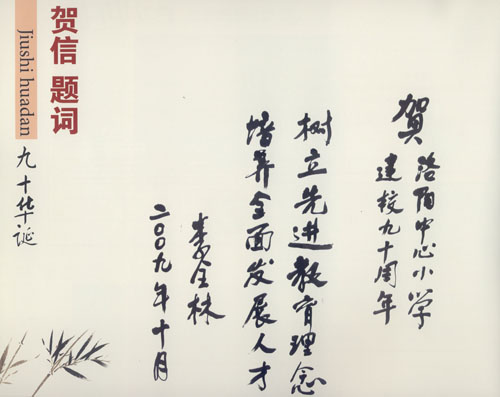 贺信 题词
Jiushi huadan
九十华诞
贺
洛阳中心小学
建校九十周年
树立先进教育理念
培养全面发展人才
李全林
二〇〇九年十月